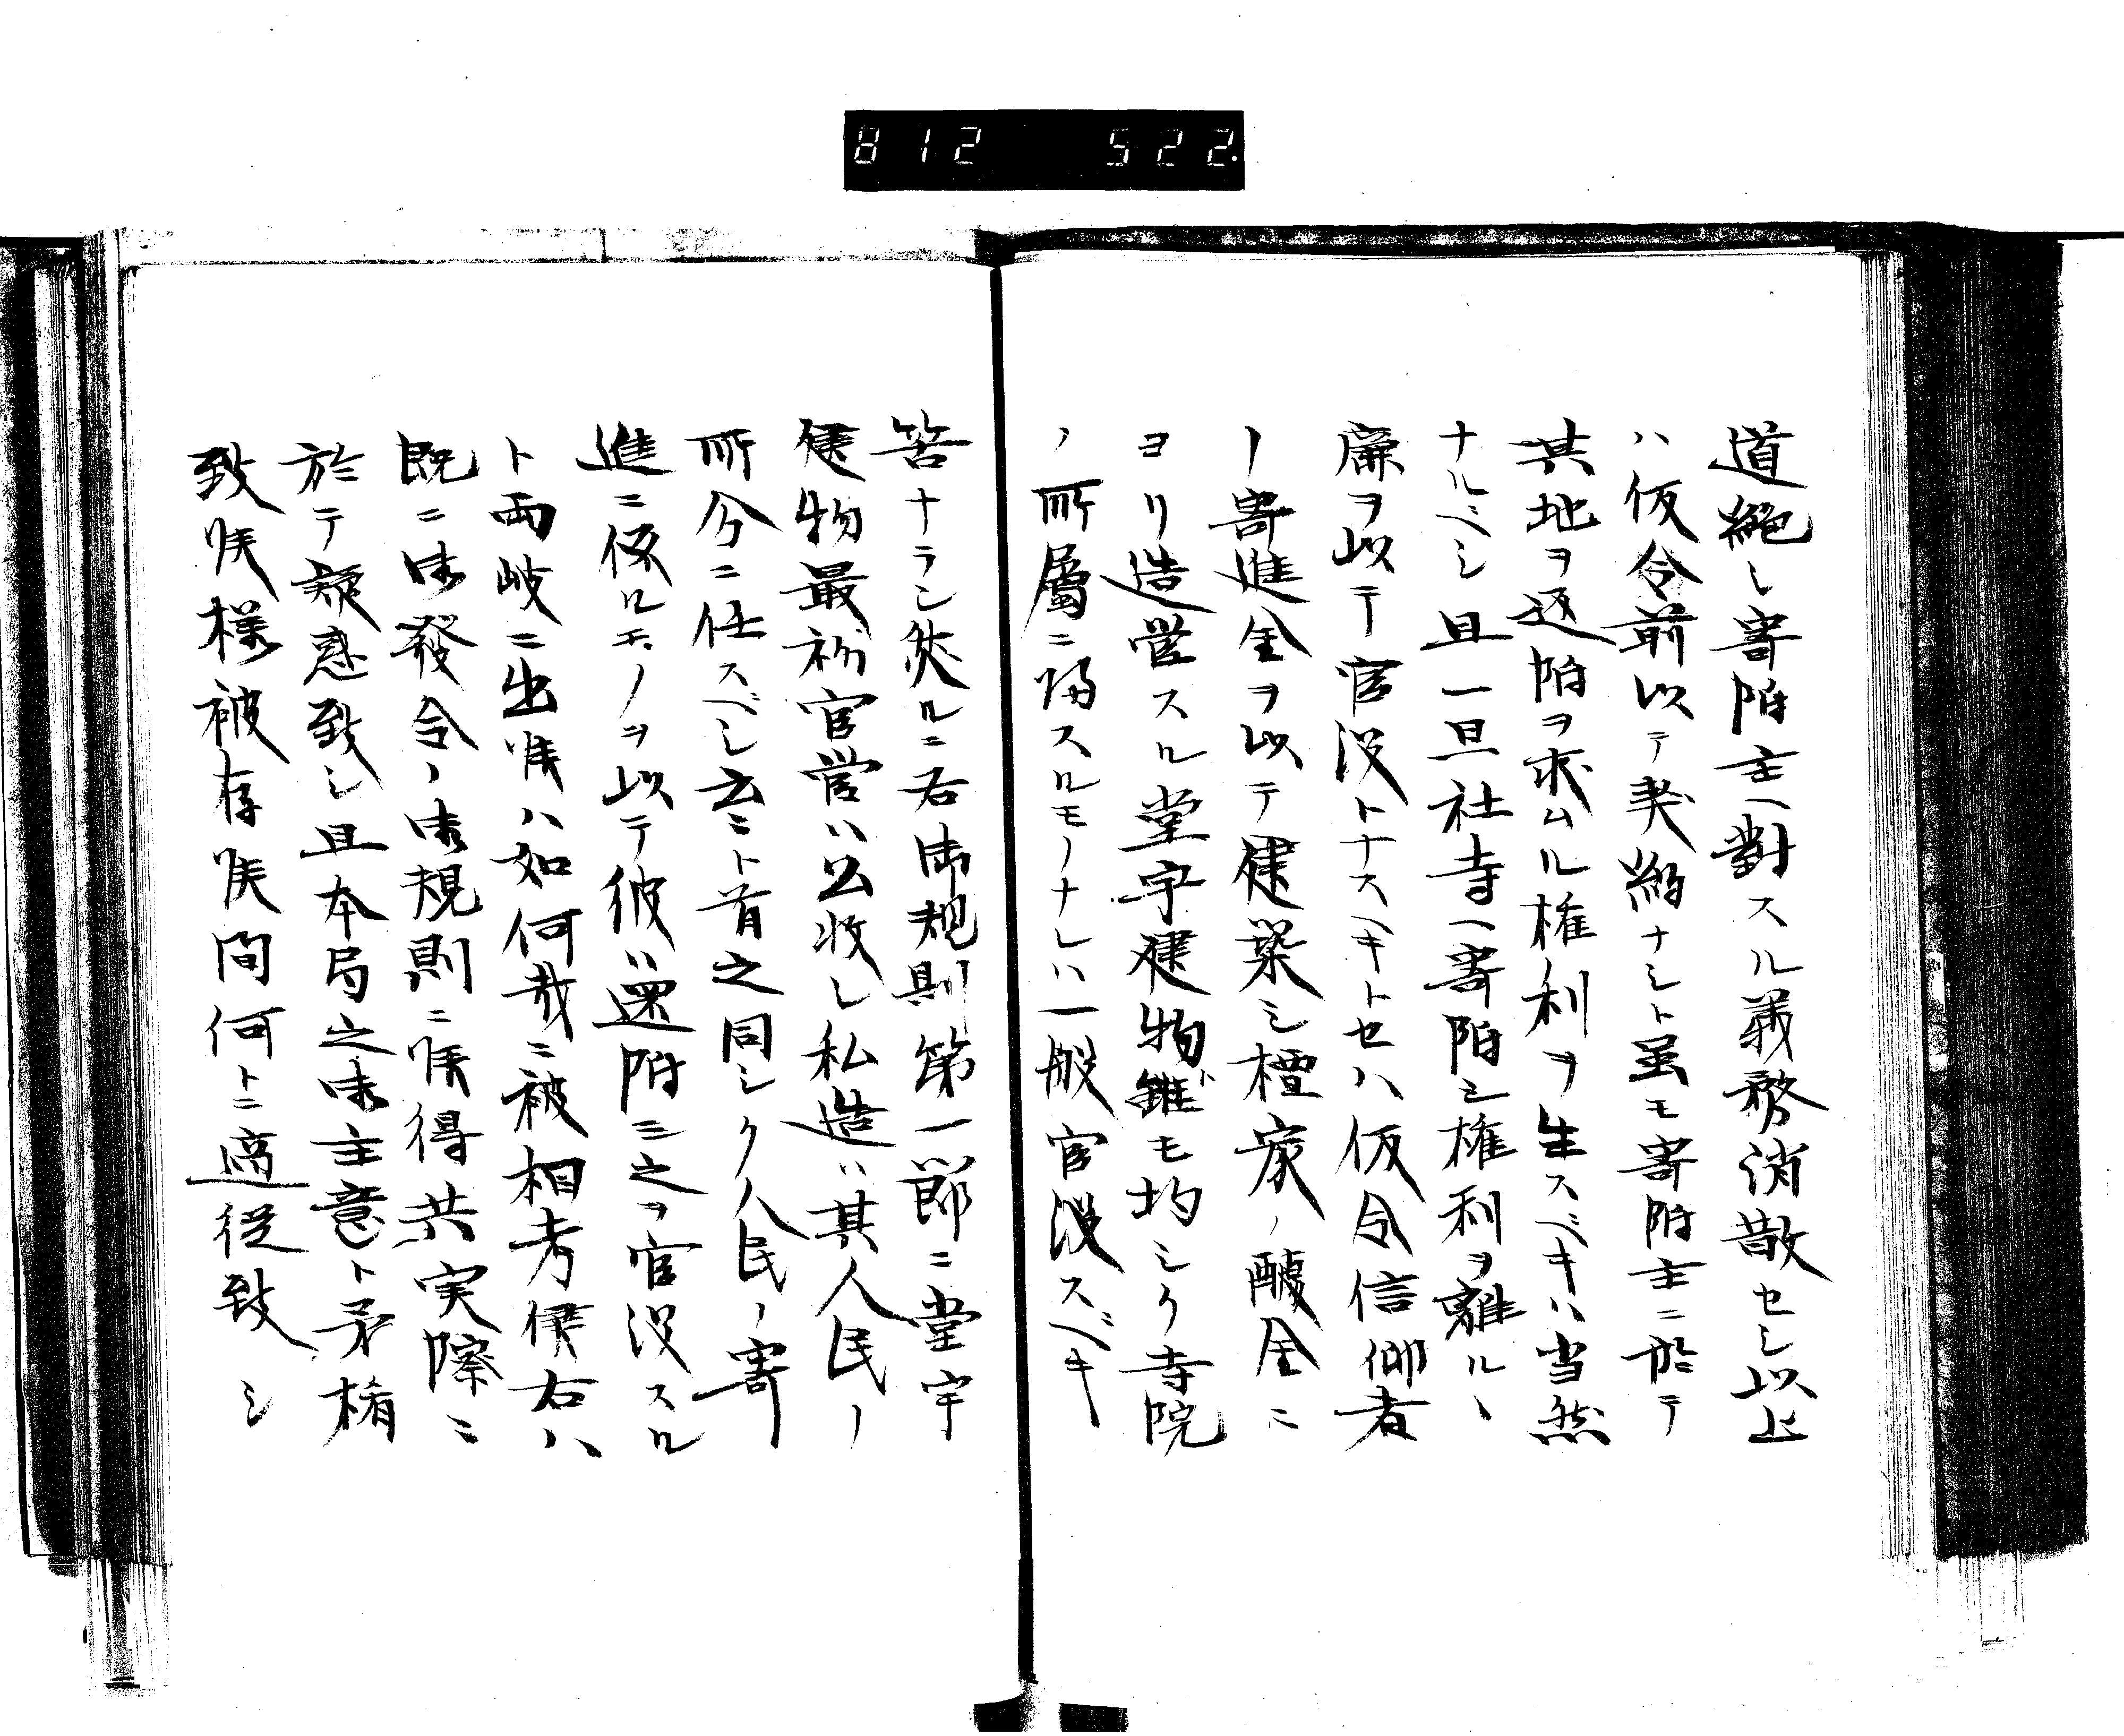 812 522.
道絶シ寄附主ヘ對スル義務消散セシ以上
ハ仮令前以テ契約ナシト虽モ寄附主ニ於テ
其地ヲ返附ヲ求ムル権利ヲ生スベキハ当然
ナルベシ且一旦社寺ヘ寄附シ権利ヲ離ルヽ
廉ヲ以テ官没トナスヘキトセハ仮令信仰者
ノ寄進金ヲ以テ建築シ檀家ノ醵金ニ
ヨリ造営スル堂宇建物雖モ均シク寺院
ノ所屬ニ帰スルモノナレハ一般官没スベキ
筈ナラン然ルニ右御規則第一節ニ堂宇
建物最初官営ハ公收シ私造ハ其人民ノ
所分ニ任スベシ云々ト有之同シク人民ノ寄
進ニ係ルモノヲ以テ彼ハ還附ニ之ヲ官没スル
ト両岐ニ出候ハ如何哉ニ被相考候右ハ
既ニ御發令ノ御規則ニ候得共実際ニ
於テ疑惑致シ且本局之御主意ト矛楯
致候様被存候間何トニ適従致シ